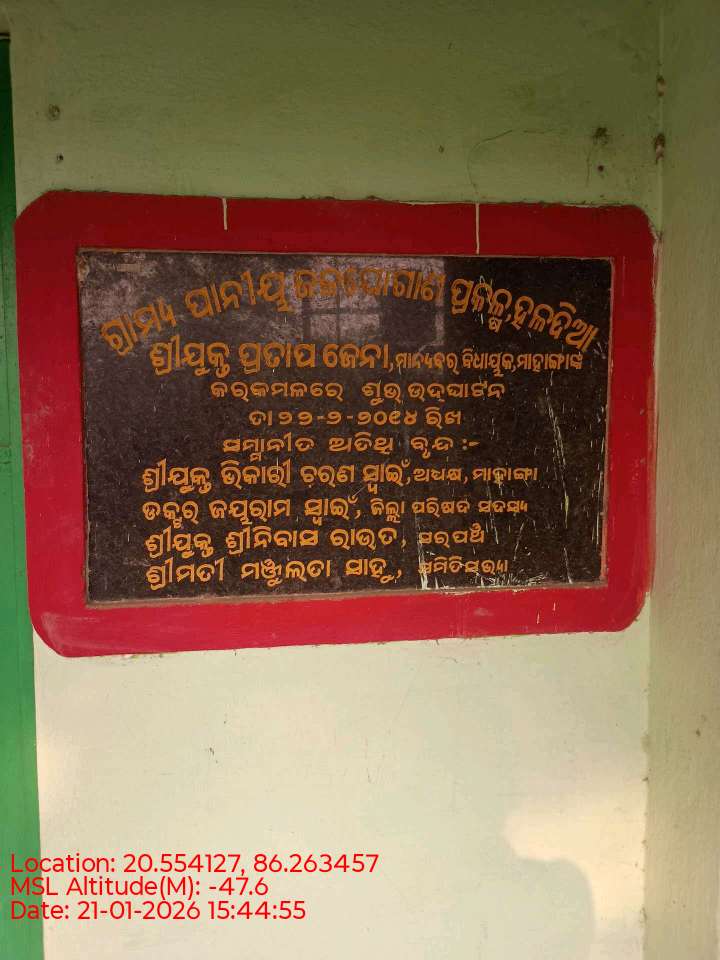 ଗ୍ରାମ୍ୟ ପାନୀୟ ଜଳଯୋଗାଣ ପ୍ରକଳ୍ପ,ହଳଦିଆ
ଶ୍ରୀଯୁକ୍ତ ପ୍ରତାପ ଜେନା,ମାନ୍ୟବର ବିଧାୟକ,ମାହାଙ୍ଗାଙ୍କ
କରକମଳରେ ଶୁଭ ଉଦ୍‌ଘାଟନ
ତା ୨୨-୨-୨୦୧୪ ରିଖ
ସମ୍ମାନୀତ ଅତିଥି ବୃନ୍ଦ :-
ଶ୍ରୀଯୁକ୍ତ ଭିକାରୀ ଚରଣ ସ୍ୱାଇଁ,ଅଧ୍ୟକ୍ଷ,ମାହାଙ୍ଗା
ଡକ୍ଟର ଜୟରାମ ସ୍ୱାଇଁ, ଜିଲ୍ଲା ପରିଷଦ ସଦସ୍ୟ
ଶ୍ରୀଯୁକ୍ତ ଶ୍ରୀନିବାସ ରାଉତ, ସରପଞ୍ଚ
ଶ୍ରୀମତୀ ମଞ୍ଜୁଲତା ସାହୁ, ସମିତିସଭ୍ୟା
Location: 20.554127, 86.263457
MSL Altitude(M): -47.6
Date: 21-01-2026 15:44:55